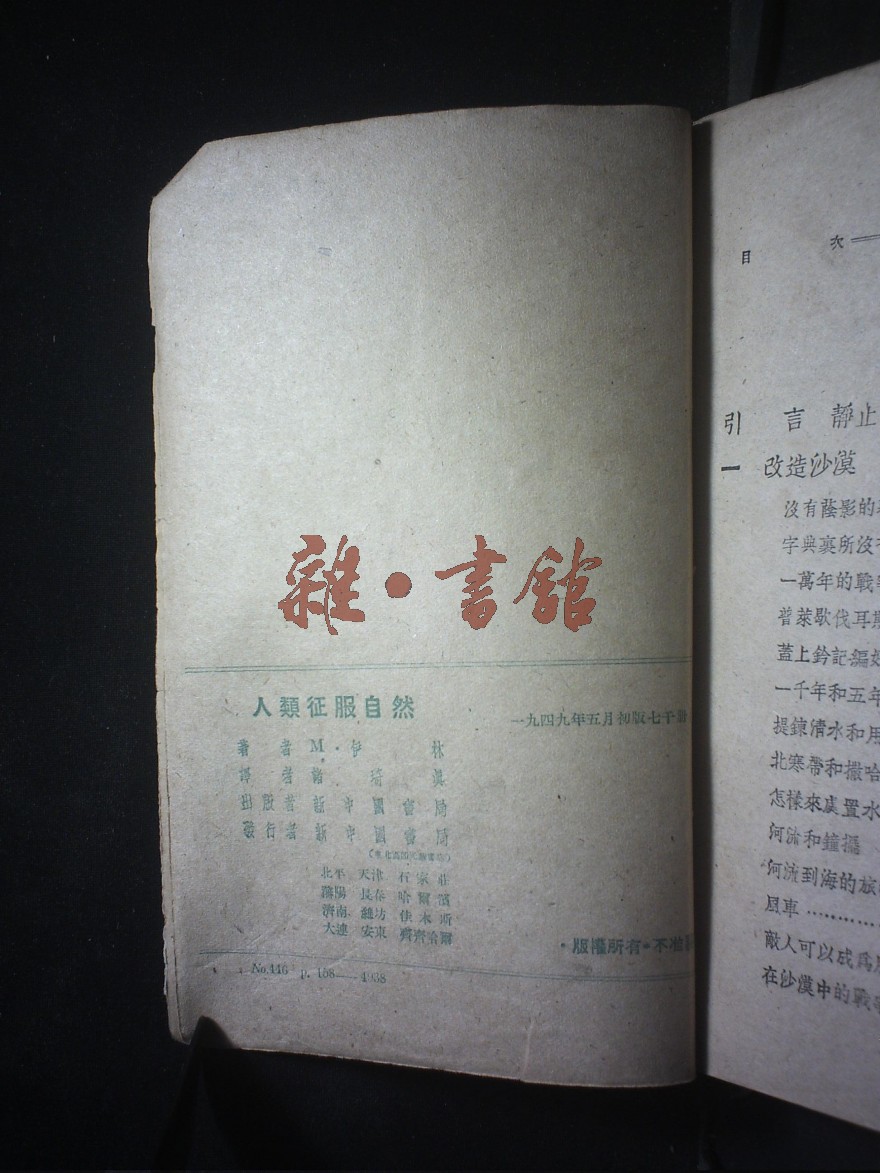 雜·書館
人類征服自然
一九四九年五月初版七千
著者 M·伊林
譯者
出版者 新中國書局
發行者 新中國書局
北平 天津 石家莊
瀋陽 長春 哈爾濱
濟南 濰坊 佳木斯
大連 安東 齊齊哈爾
·版權所有·不准
No.446 p. 168—4058
目 次
引 言 靜止
一 改造沙漠
沒有蔭影的
字典裏所沒有
一萬年的戰
普萊歇伐耳斯
蓋上鈐記
一千年和五年
提鍊清水和用
北寒帶和撒哈
怎樣來處置水
河流和鐘擺
河流到海的旅
風車…………
敵人可以成爲
在沙漠中的戰